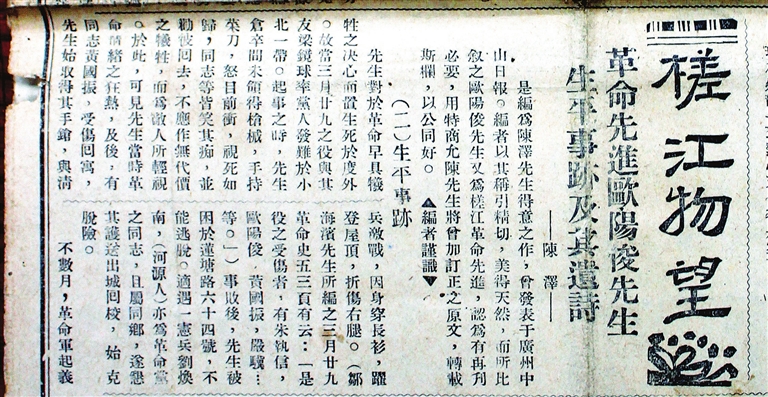 槎江物望
革命先進歐陽俊先生
生平事跡及其遺詩
——陳澤——
是編爲陳澤先生得意之作,曾發表于廣州中
山日報。編者以其稱引精切,美得天然,而所比
叙之歐陽俊先生又爲槎江革命先進,認爲有再刊
必要,用特商允陳先生將曾加訂正之原文,轉載
斯欄,以公同好。▲編者謹識▼
(一)生平事跡
先生對於革命早具犧
牲之决心而置生死於度外
。故當三月廿九之役與其
友梁鏡球率黨人發難於小
北一帶。起事之時,先生
倉卒間未領得槍械,手持
菜刀,怒目前衝,視死如
歸,同志等皆笑其痴,並
勸彼回去,不應作無代價
之犧牲,而爲敵人所輕視
。於此,可見先生當時革
命情緒之狂熱,及後,有
同志黃國振,受傷回寓,
先生始取得其手鎗,與淸
兵激戰,因身穿長衫,躍
登屋頂,折傷右腿。(鄒
海濱先生所編之三月廿九
革命史五三頁有云:一是
役之受傷者,有朱執信,
歐陽俊,黃國振,嚴驥…
等。一)事敗後,先生被
困於蓮塘路六十四號,不
能逃脫。適遇一憲兵劉煥
南,(河源人)亦爲革命黨
之同志,且屬同鄉,遂懇
其護送出城回校,始克
脫險。
不數月,革命軍起義